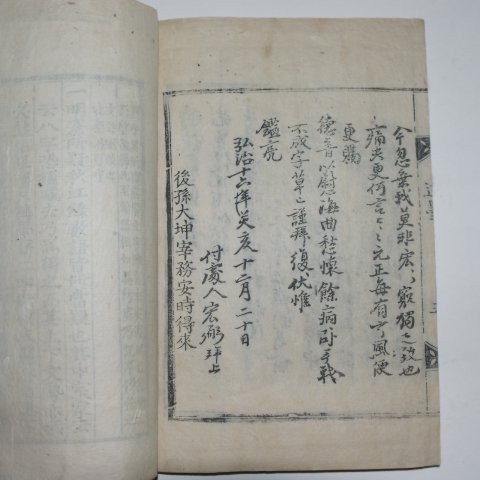 今忽棄我莫非宏〻窮獨之致也
痛夫更何言〻〻元正每有寸風便
更驚
德音以慰海曲愁懷餘病卧手戰
不成字草〻謹拜復伏惟
鑑亮
弘治十六年癸亥十二月二十日
付處人宏弼拜上
後孫大坤宰務安時得來